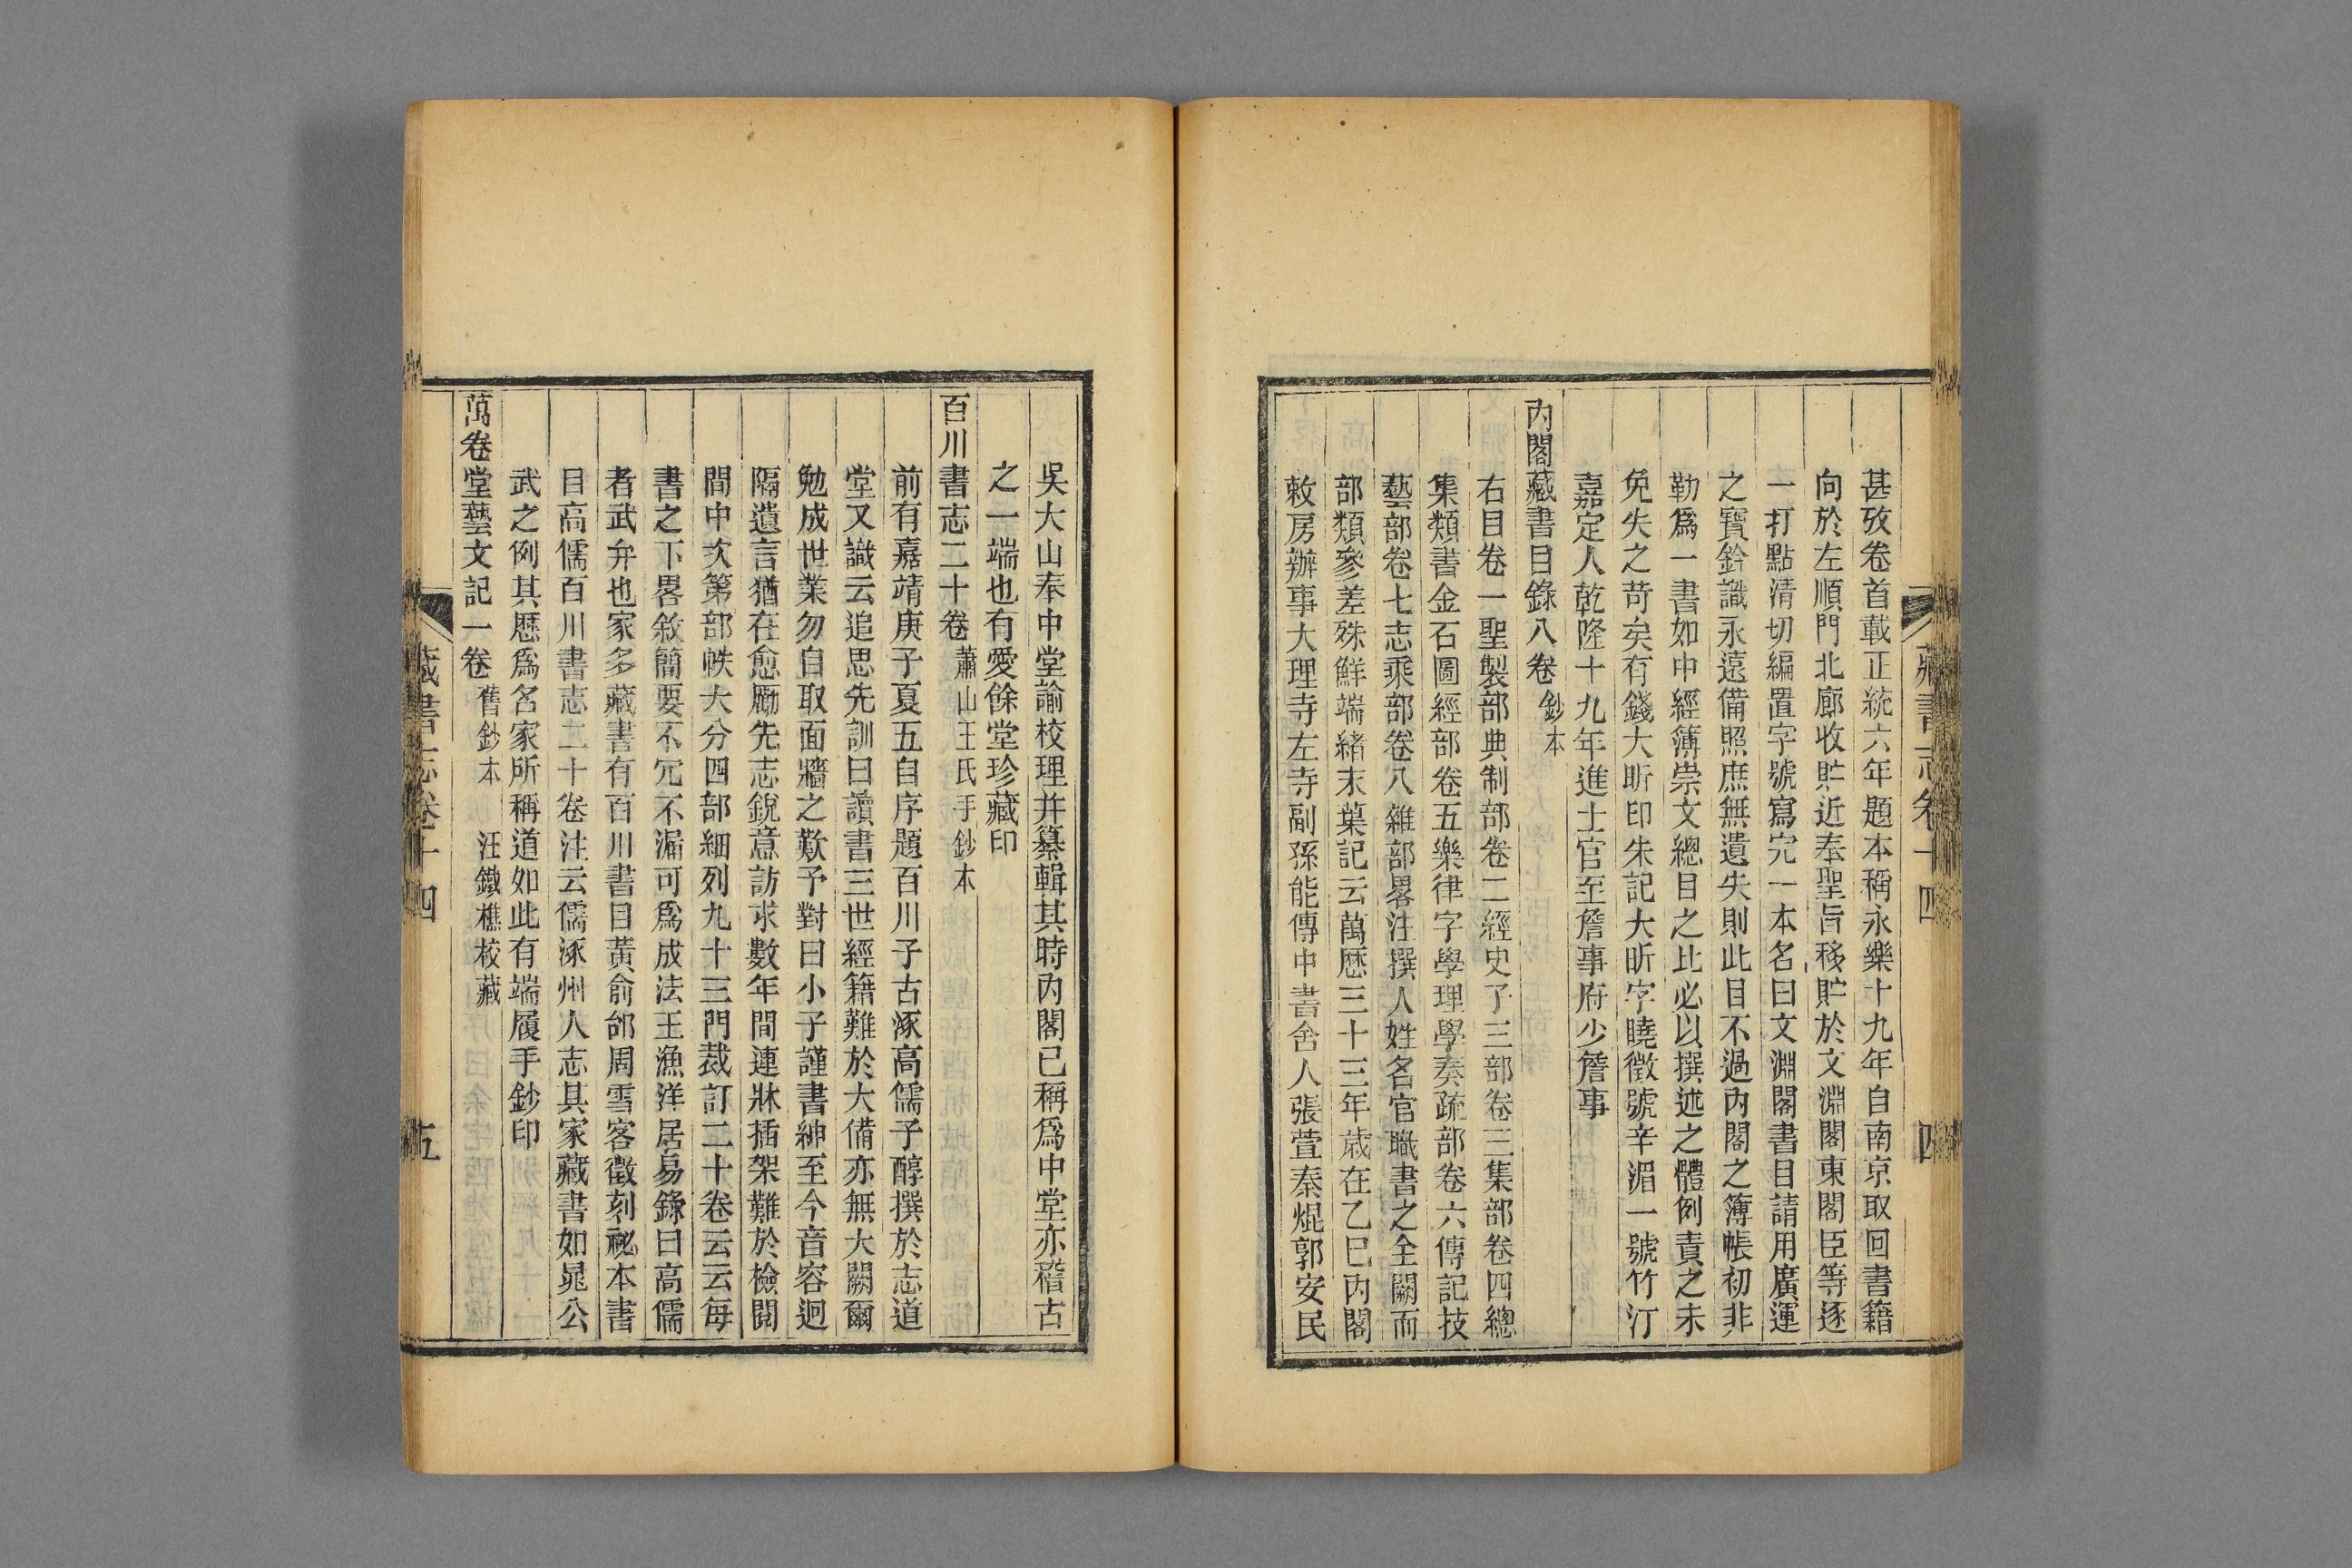 藏書志卷十四
四
甚攷卷首載正統六年題本稱永樂十九年自南京取回書籍
向於左順門北廊收貯近奉聖旨移貯於文淵閣東閣臣等逐
一打點清切編置字號寫完一本名曰文淵閣書目請用廣運
之寶鈐識永遠備照庶無遺失則此目不過內閣之簿帳初非
勒爲一書如中經簿崇文總目之比必以撰述之體例責之未
免失之苛矣有錢大昕印朱記大昕字曉徵號辛湄一號竹汀
嘉定人乾隆十九年進士官至詹事府少詹事
內閣藏書目錄八卷 鈔本
右目卷一聖製部典制部卷二經史子三部卷三集部卷四總
集類書金石圖經部卷五樂律字學理學奏疏部卷六傳記技
藝部卷七志乘部卷八雜部畧注撰人姓名官職書之全闕而
部類參差殊鮮端緒末葉記云萬厯三十三年歲在乙巳內閣
敕房辦事大理寺左寺副孫能傳中書舍人張萱秦焜郭安民
吳大山奉中堂諭校理并纂輯其時內閣已稱爲中堂亦稽古
之一端也有愛餘堂珍藏印
百川書志二十卷 蕭山王氏手鈔本
前有嘉靖庚子夏五自序題百川子古涿高儒子醇撰於志道
堂又識云追思先訓曰讀書三世經籍難於大備亦無大闕爾
勉成世業勿自取面牆之歎予對曰小子謹書紳至今音容迥
隔遺言猶在愈勵先志銳意訪求數年間連牀插架難於檢閱
間中次第部帙大分四部細列九十三門裁訂二十卷云云每
書之下畧敘簡要不冗不漏可爲成法王漁洋居易錄曰高儒
者武弁也家多藏書有百川書目黃俞邰周雪客徵刻祕本書
目高儒百川書志二十卷注云儒涿州人志其家藏書如晁公
武之例其厯爲名家所稱道如此有端履手鈔印
萬卷堂藝文記一卷 舊鈔本 汪鐵樵校藏
藏書志卷十四
五